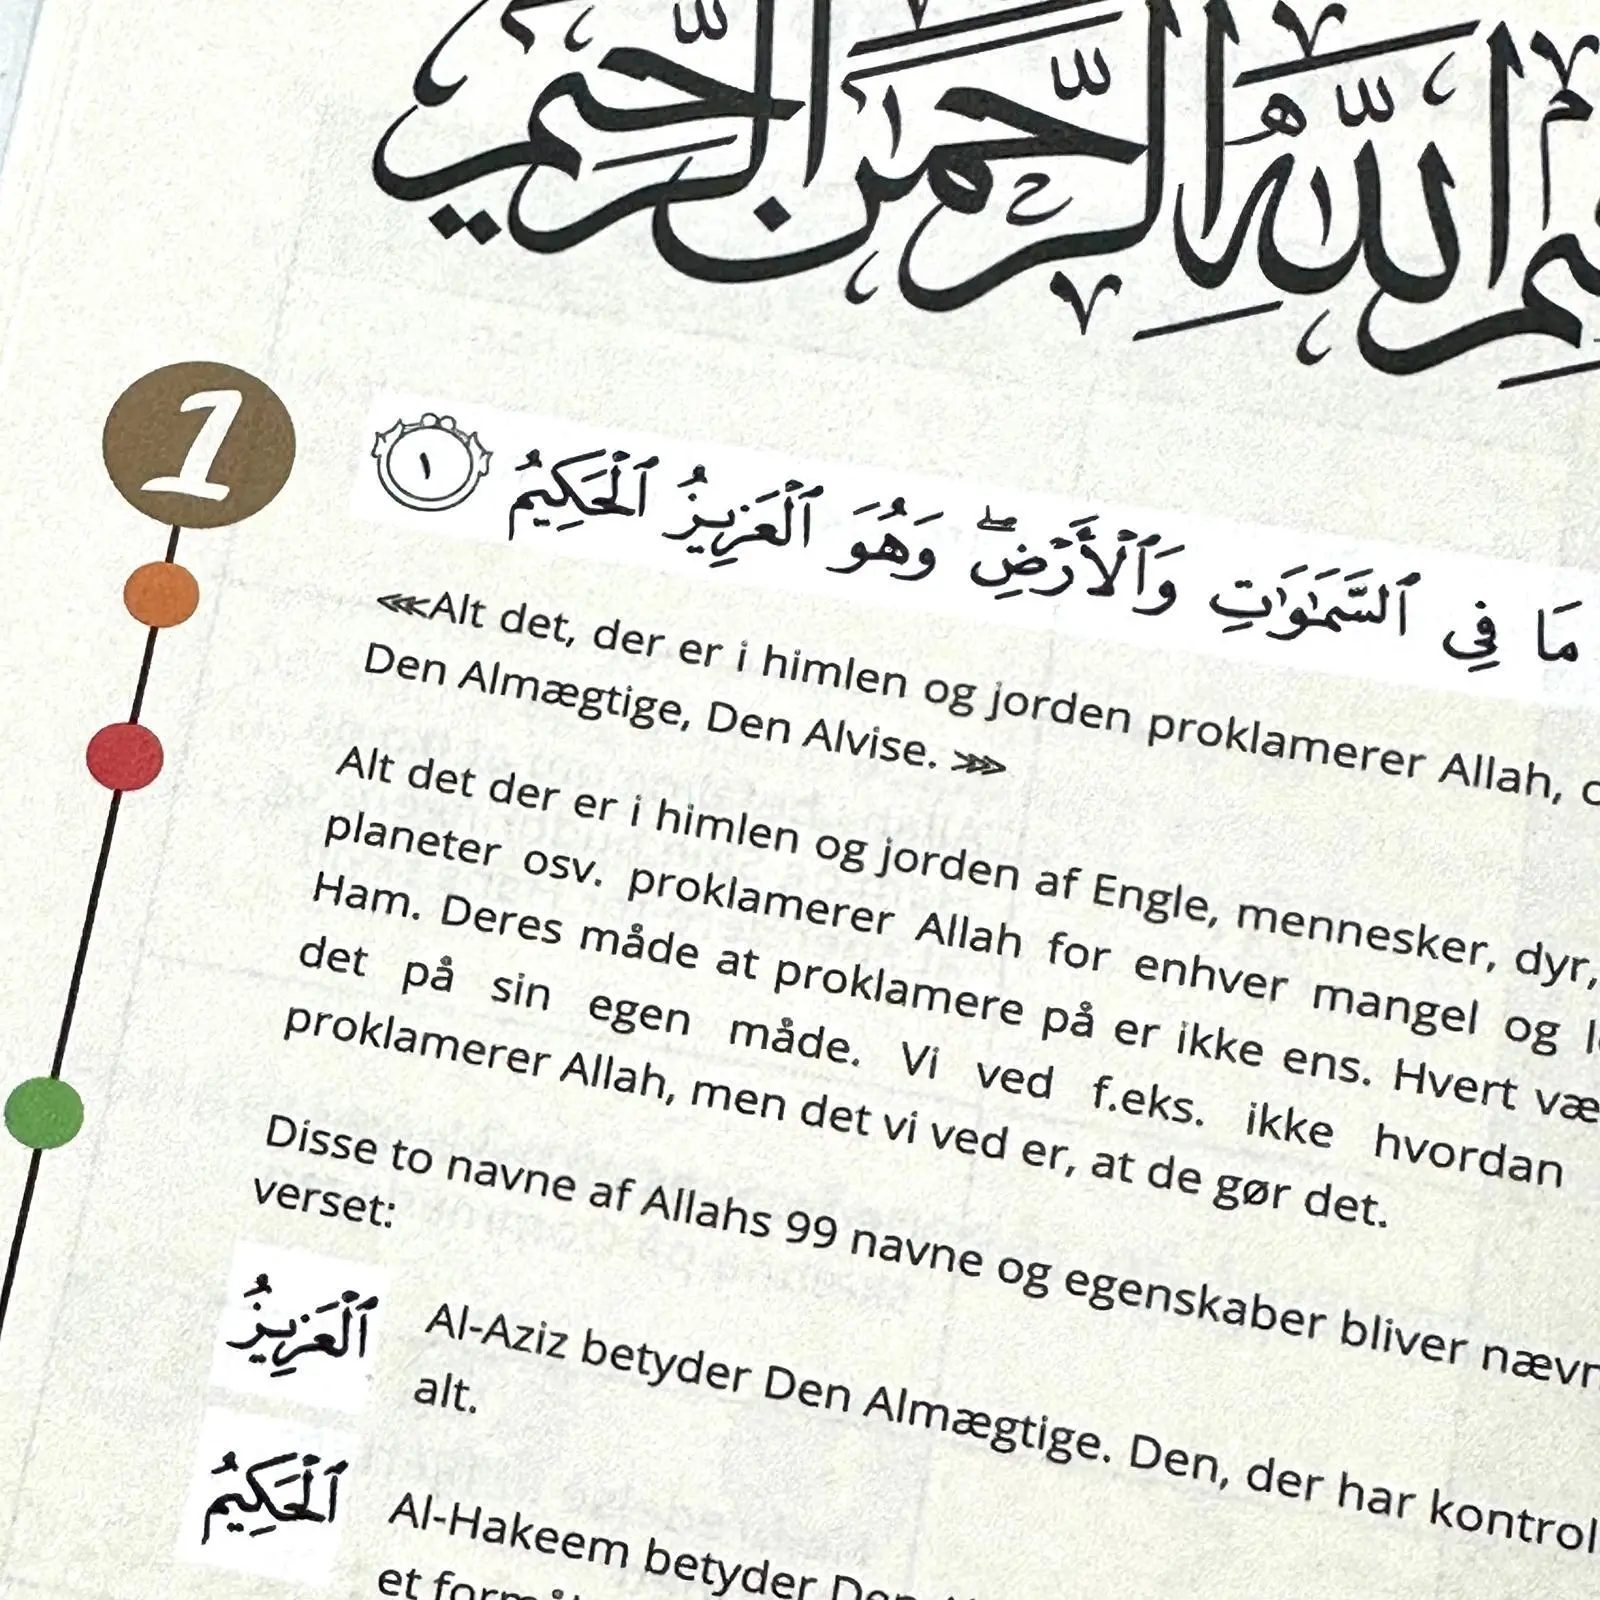 بِسْمِ ٱللَّهِ ٱلرَّحْمَٰنِ ٱلرَّحِيمِ
1
مَا فِى ٱلسَّمَٰوَٰتِ وَٱلْأَرْضِ ۖ وَهُوَ ٱلْعَزِيزُ ٱلْحَكِيمُ ١
⋘Alt det, der er i himlen og jorden proklamerer Allah,
Den Almægtige, Den Alvise. ⋙
Alt det der er i himlen og jorden af Engle, mennesker, dyr,
planeter osv. proklamerer Allah for enhver mangel og
Ham. Deres måde at proklamere på er ikke ens. Hvert
det på sin egen måde. Vi ved f.eks. ikke hvordan
proklamerer Allah, men det vi ved er, at de gør det.
Disse to navne af Allahs 99 navne og egenskaber bliver
verset:
ٱلْعَزِيزُ Al-Aziz betyder Den Almægtige. Den, der har
alt.
ٱلْحَكِيمُ Al-Hakeem betyder
et